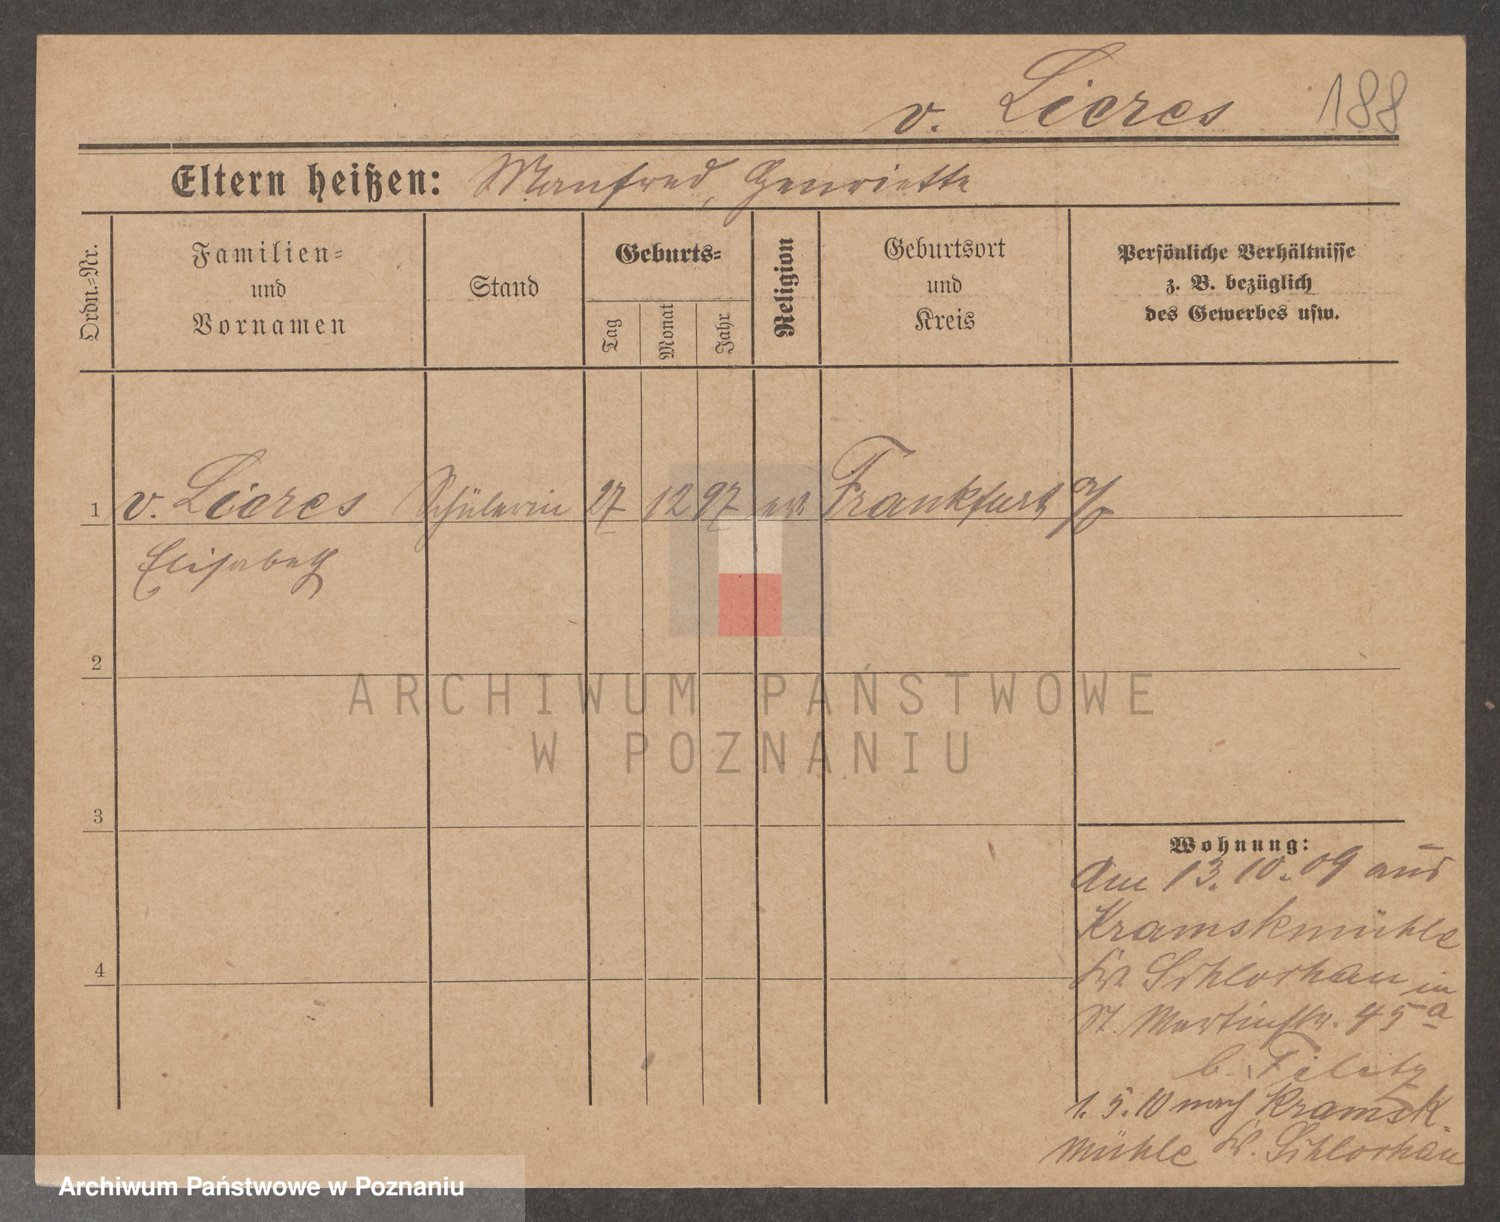 v. Lieres 188
Eltern heißen: Manfred, Henriette
Ordn.-Nr.
Familien-
und
Vornamen
Stand
Geburts-
Tag
Monat
Jahr
Religion
Geburtsort
und
Kreis
Persönliche Verhältnisse
z. B. bezüglich
des Gewerbes usw.
1 v. Lieres Schülerin 27 12 97 ev. Frankfurt a/O
Elisabeth
2
3
4
Wohnung:
Am 13.10.09 aus
Kramskmühle
Kr. Schlochau in
St. Martinstr. 45a
b. Filitz
1.5.10 nach Kramsk-
mühle Kr. Schlochau
ARCHIWUM PAŃSTWOWE
W POZNANIU
Archiwum Państwowe w Poznaniu